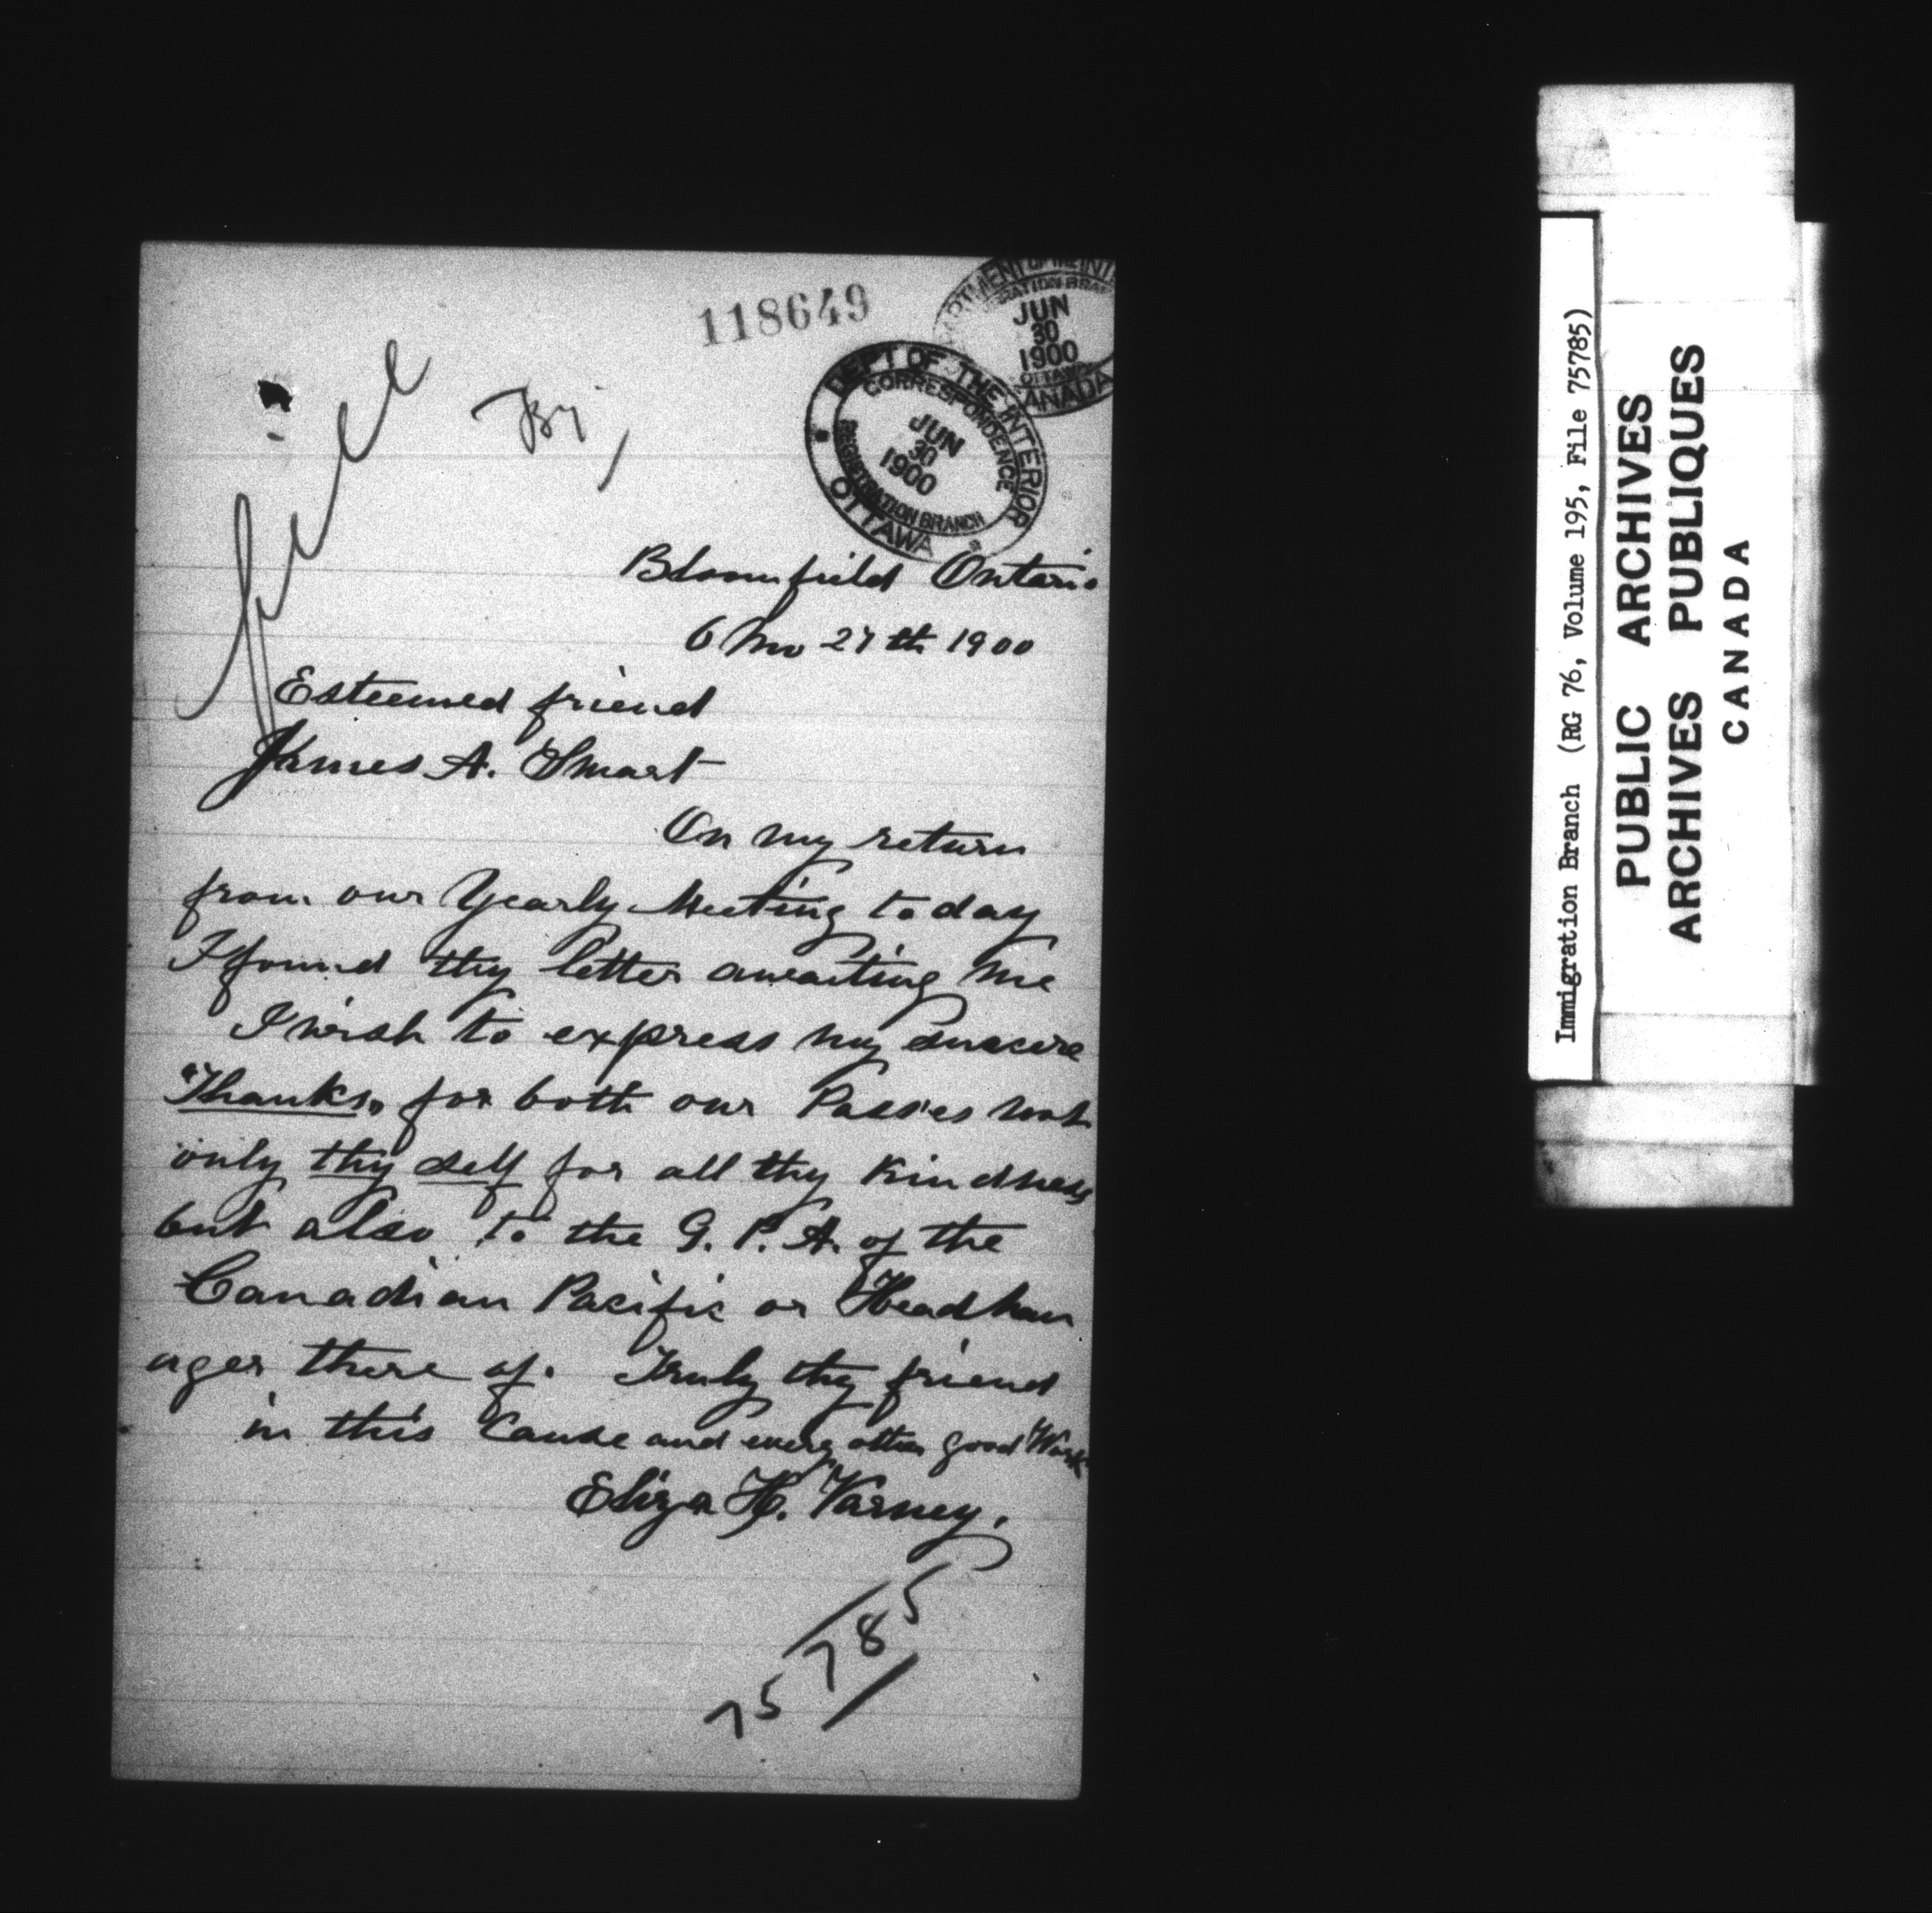 118649
DEPARTMENT OF THE INTERIOR
IMMIGRATION BRANCH
JUN
30
1900
OTTAWA
CANADA
DEPT OF THE INTERIOR
CORRESPONDENCE
JUN
30
1900
REGISTRATION BRANCH
OTTAWA
file
Bloomfield Ontario
6 Mo 27th 1900
Esteemed friend
James A. Smart
On my return
from our Yearly Meeting to day
I found thy letter awaiting me
I wish to express my sincere
"Thanks, for both our Passes not
only thy self for all thy Kindness
but also to the G. P. A. of the
Canadian Pacific or Head Man
ager there of. Truly thy friend
in this Cause and every other good Work
Eliza H. Varney.
75785
Immigration Branch (RG 76, Volume 195, File 75785)
PUBLIC ARCHIVES
ARCHIVES PUBLIQUES
CANADA